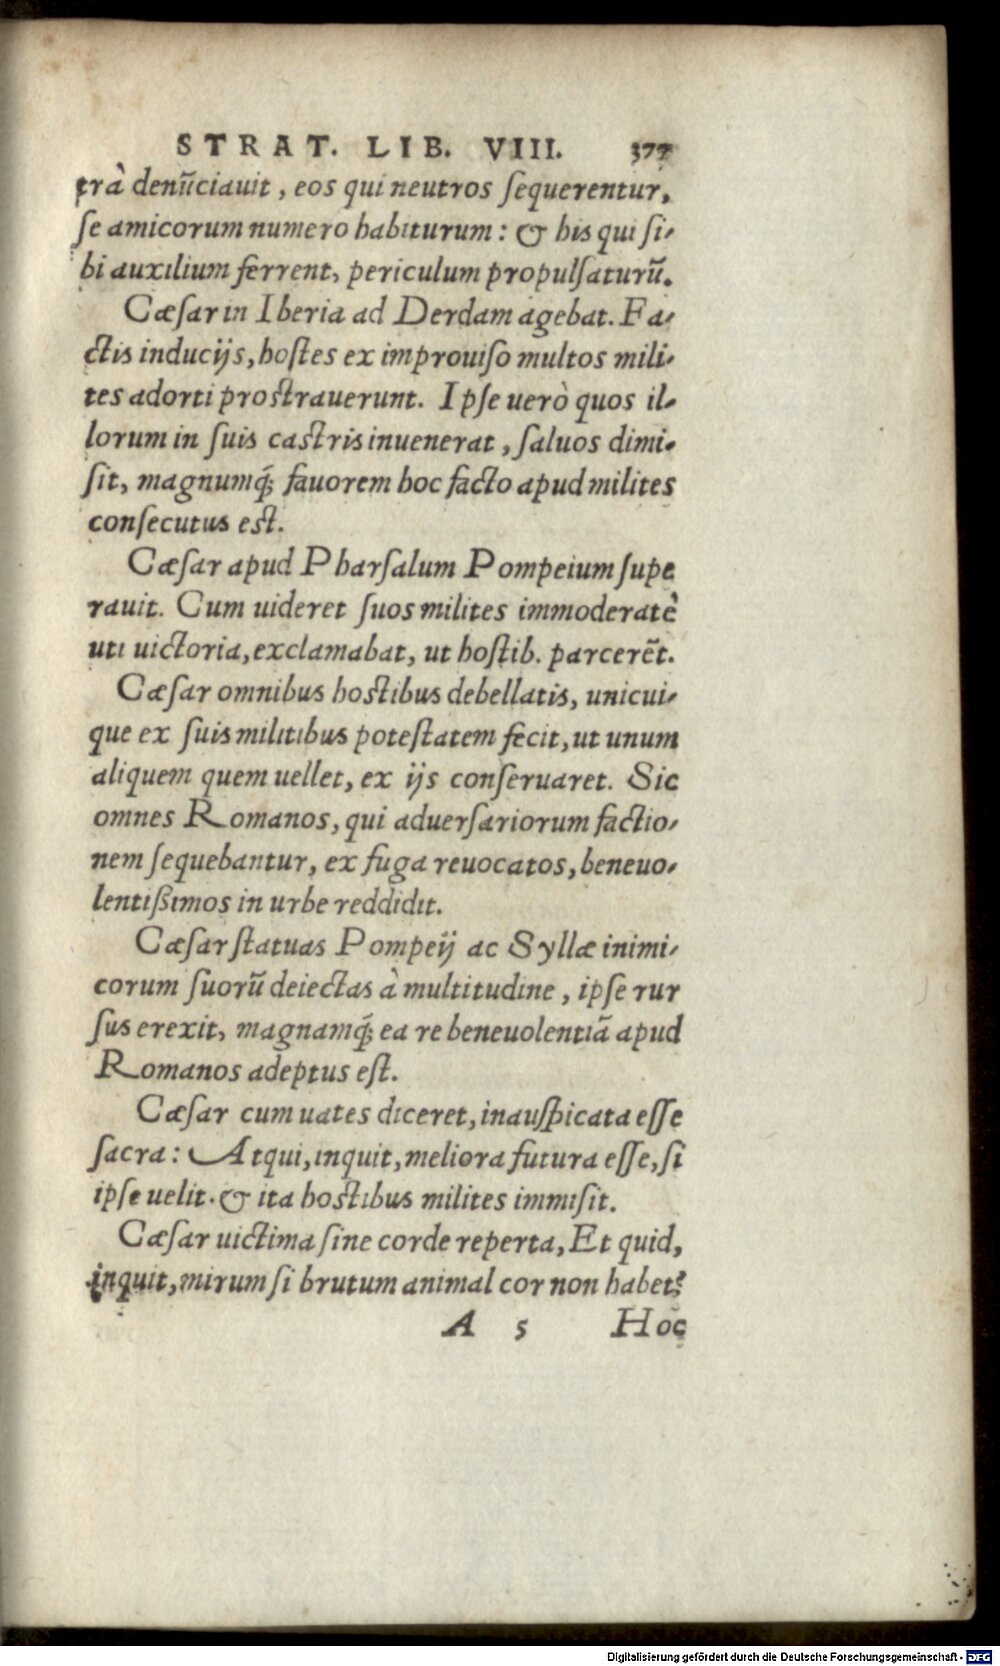 STRAT. LIB. VIII. 377
trà denũciauit, eos qui neutros ſequerentur,
ſe amicorum numero habiturum: & his qui ſi-
bi auxilium ferrent, periculum propulſaturũ.
Cæſar in Iberia ad Derdam agebat. Fa-
ctis inducijs, hoſtes ex improuiſo multos mili-
tes adorti proſtrauerunt. Ipſe uerò quos il-
lorum in ſuis caſtris inuenerat, ſaluos dimi-
ſit, magnumq́; fauorem hoc facto apud milites
conſecutus eſt.
Cæſar apud Pharſalum Pompeium ſupe
rauit. Cum uideret ſuos milites immoderatè
uti uictoria, exclamabat, ut hoſtib. parcerẽt.
Cæſar omnibus hoſtibus debellatis, unicui-
que ex ſuis militibus poteſtatem fecit, ut unum
aliquem quem uellet, ex ijs conſeruaret. Sic
omnes Romanos, qui aduerſariorum factio-
nem ſequebantur, ex fuga reuocatos, beneuo-
lentißimos in urbe reddidit.
Cæſar ſtatuas Pompeij ac Syllæ inimi-
corum ſuorũ deiectas à multitudine, ipſe rur
ſus erexit, magnamq́; ea re beneuolentiã apud
Romanos adeptus eſt.
Cæſar cum uates diceret, inauſpicata eſſe
ſacra: Atqui, inquit, meliora futura eſſe, ſi
ipſe uelit. & ita hoſtibus milites immiſit.
Cæſar uictima ſine corde reperta, Et quid,
inquit, mirum ſi brutum animal cor non habet?
A 5 Hoc
Digitalisierung gefördert durch die Deutsche Forschungsgemeinschaft - DFG